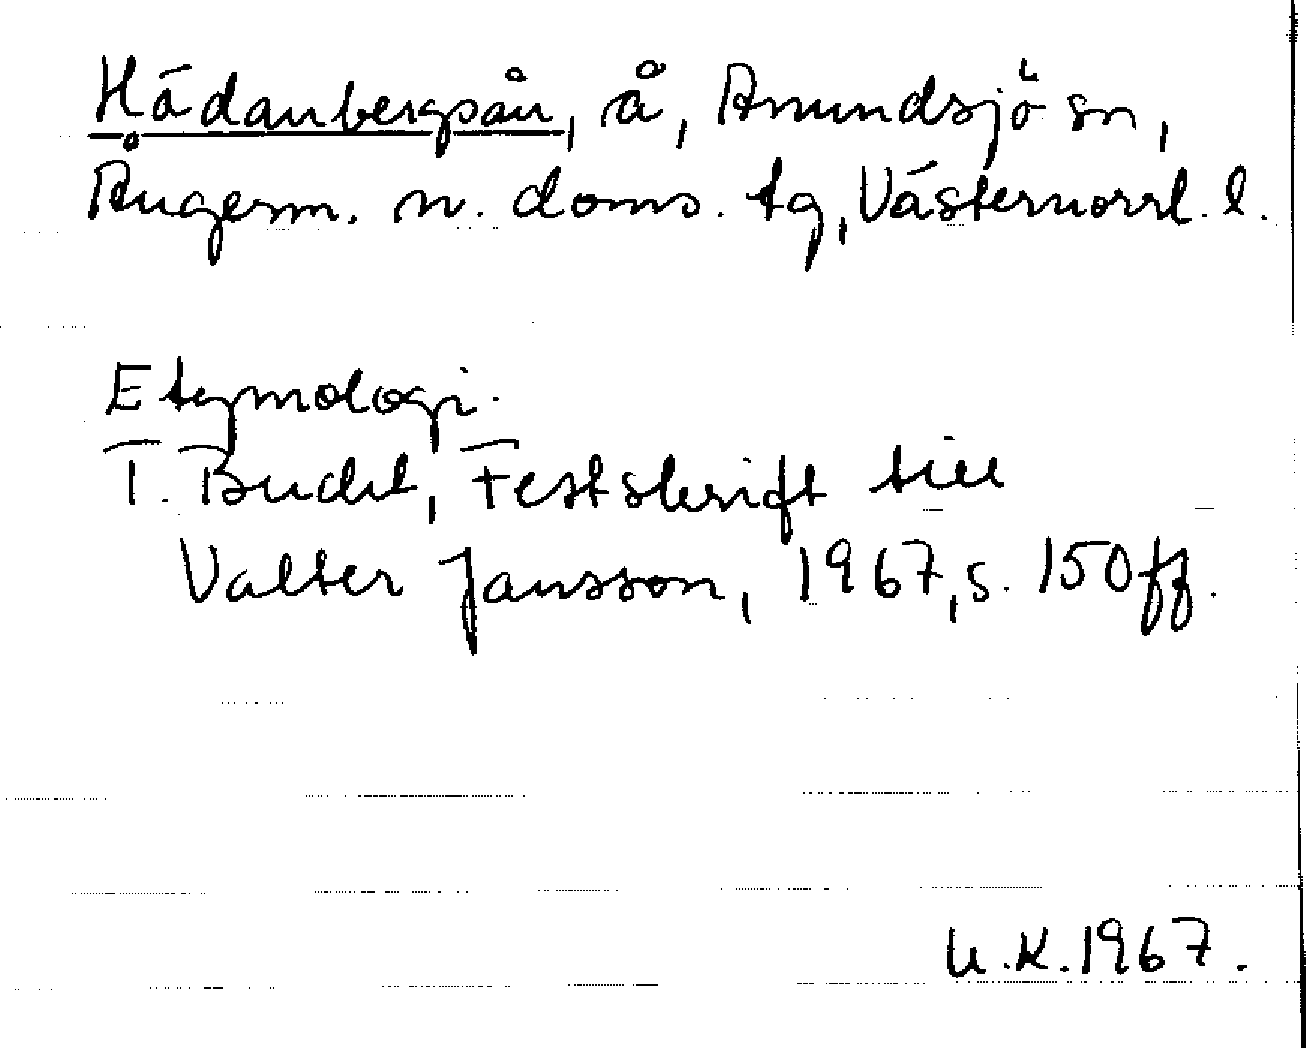 Hädanbergsån, å, Anundsjö sn,
Ångerm. n. doms. tg, Västernorrl. l.
Etymologi.
T. Bucht, Festskrift till
Valter Jansson, 1967, s. 150ff.
U.K. 1967.